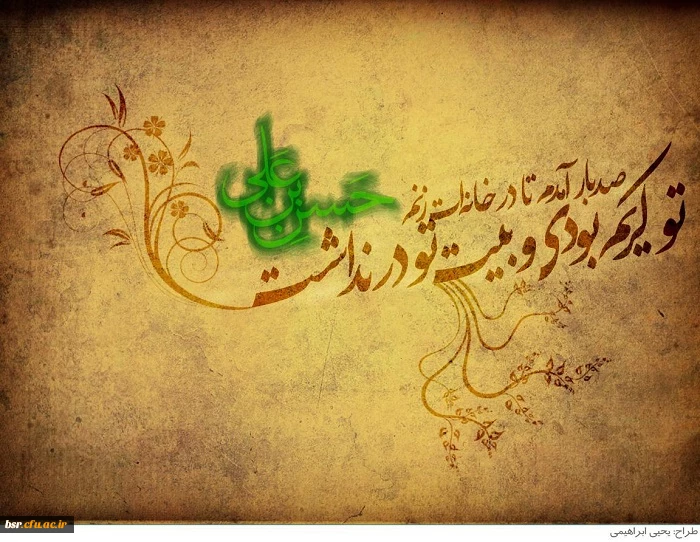 صدبار آمدم تا در خانه‌ات زنم
تو کریم بودی و بیت تو در نداشت
حسن بن علی
bsr.cfu.ac.ir
طراح: یحیی ابراهیمی